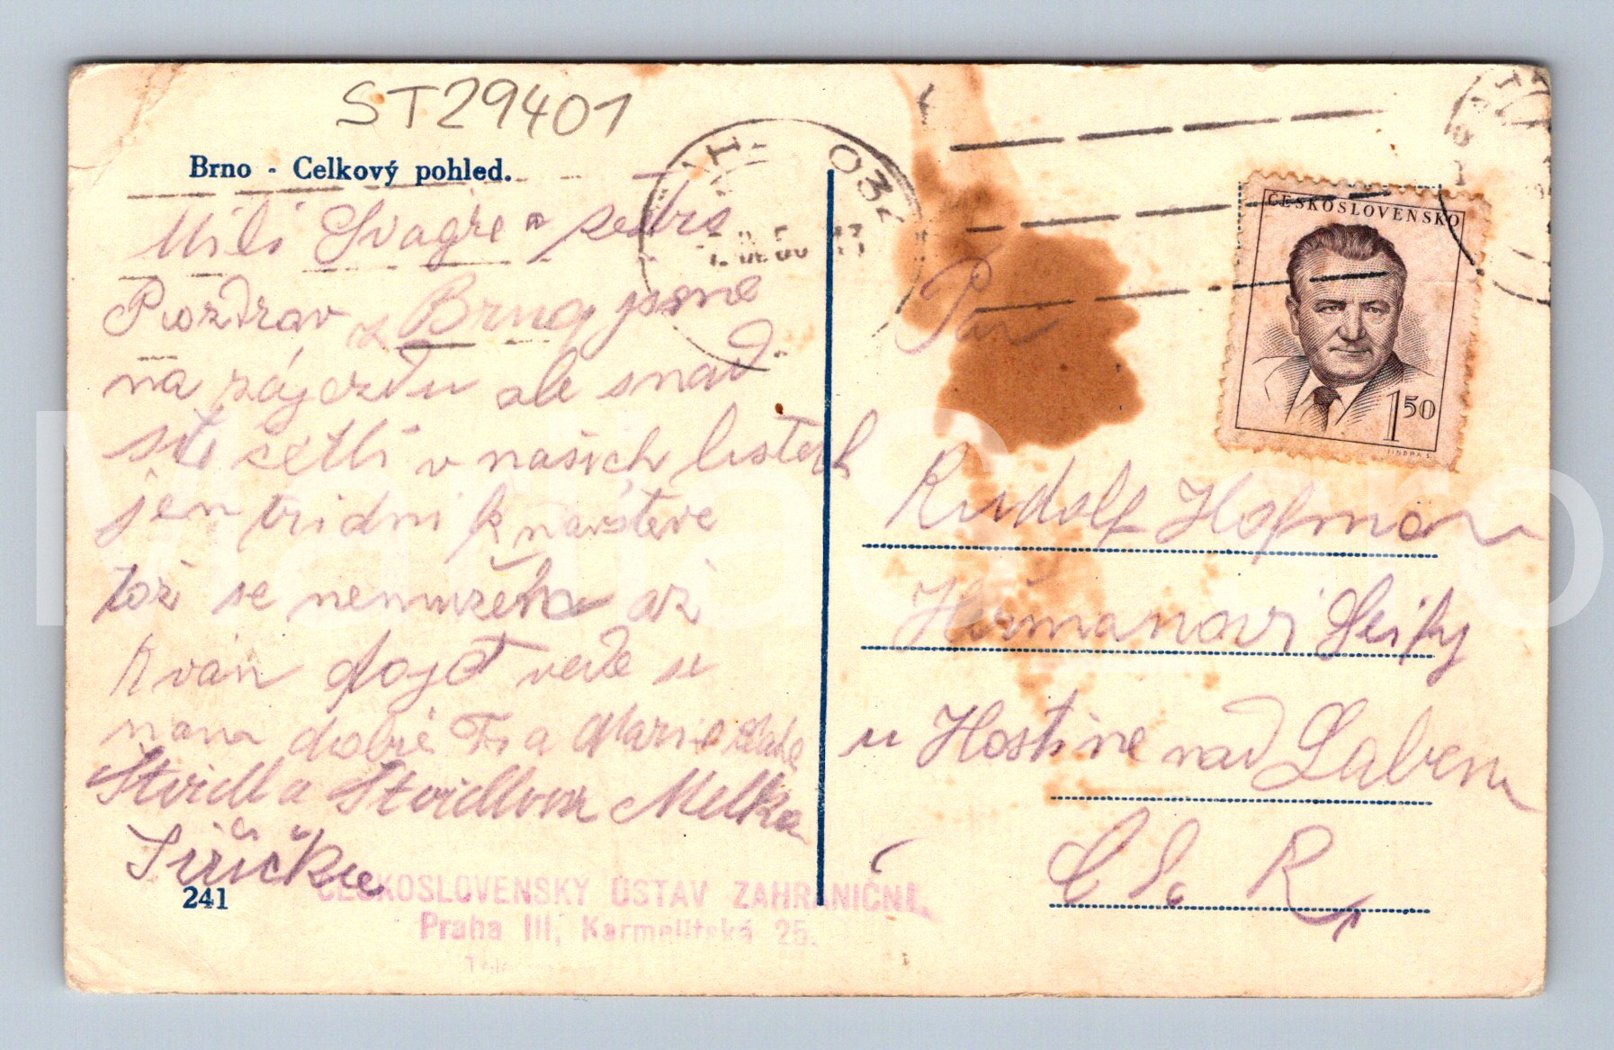 ST29401
Brno - Celkový pohled.
Milí Švagře a sestro
Pozdrav z Brna jsme
na zájezdu ale snad
ste četli v našich listech
jen tri dni k návštěve
tož se nemuzeme až
k vám dojet vede se
nam dobře Fr a Marie
Štvidla Štvidlova Melka
Jiřičku
241
ČESKOSLOVENSKÝ ÚSTAV ZAHRANIČNÍ,
Praha III, Karmelitská 25.
ČESKOSLOVENSKO
1 50
JINDRA S.
Pan
Rudolf Hofman
Heřmanovi Sejfy
u Hostine nad Labem
Č S. R.